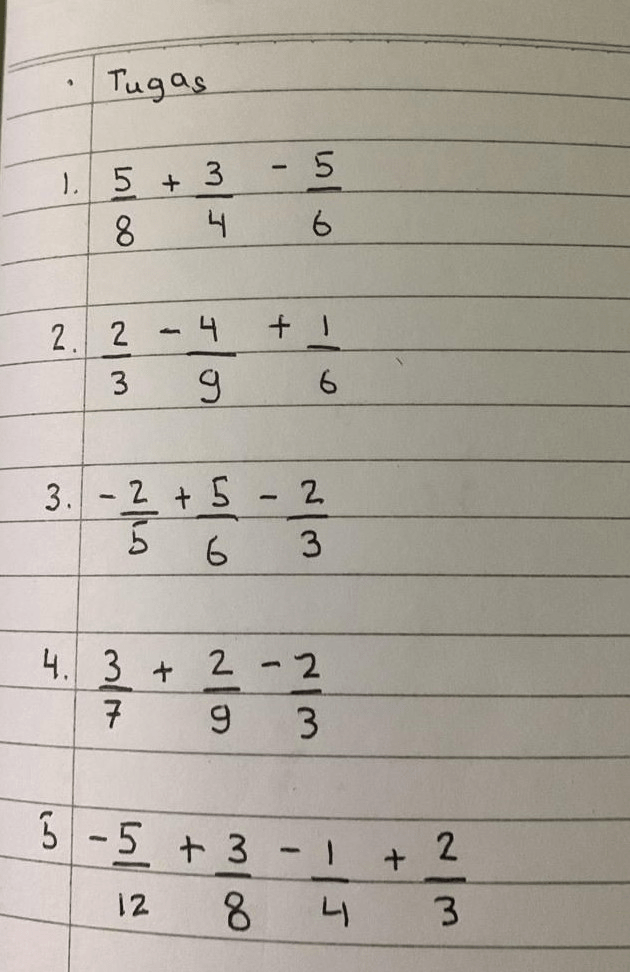 Tugas
1. 5/8 + 3/4 - 5/6
2. 2/3 - 4/9 + 1/6
3. -2/5 + 5/6 - 2/3
4. 3/7 + 2/9 - 2/3
5 -5/12 + 3/8 - 1/4 + 2/3